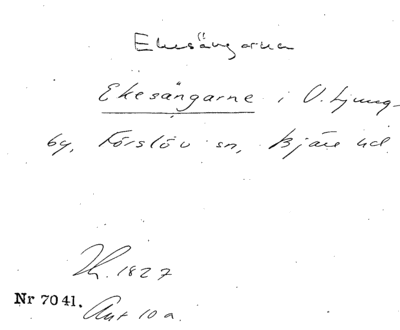 Ekesängarna
Ekesängarne i V. Ljung-
by, Förslöv sn, Bjäre hd.
Th. 1827
Nr 7041. Avt 10 a.